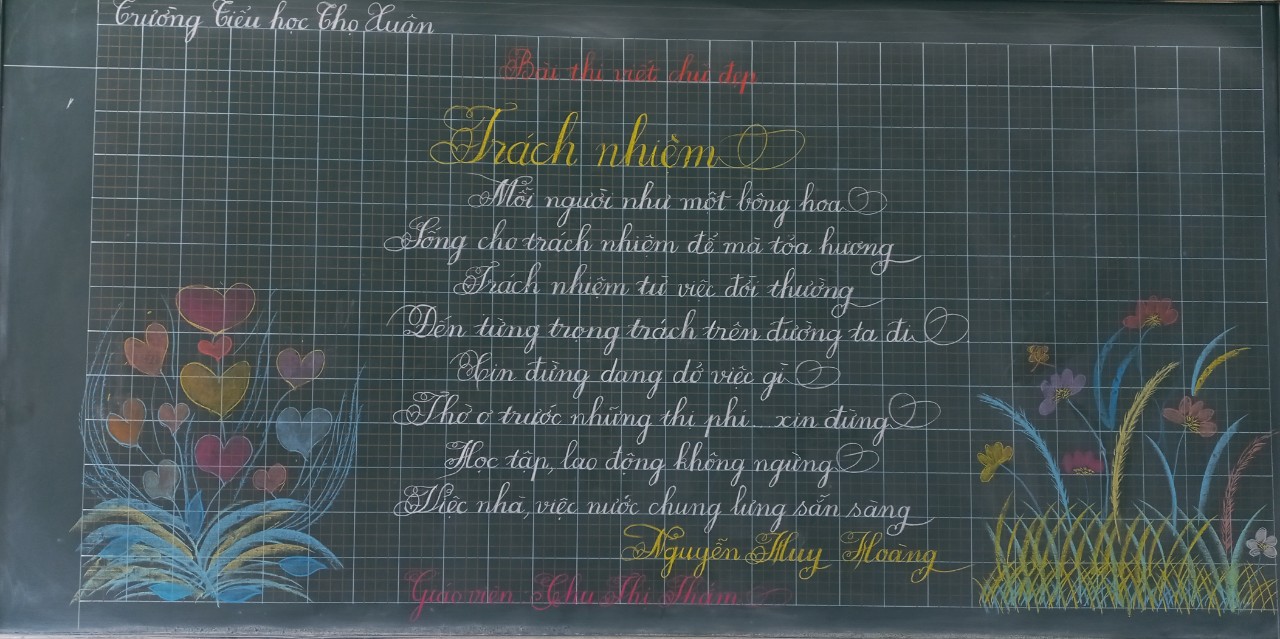 Trường Tiểu học Thọ Xuân
Bài thi viết chữ đẹp
Trách nhiệm
Mỗi người như một bông hoa
Sống cho trách nhiệm để mà tỏa hương
Trách nhiệm từ việc đời thường
Đến từng trọng trách trên đường ta đi
Xin đừng dang dở việc gì
Thờ ơ trước những thị phi... xin đừng
Học tập, lao động không ngừng
Việc nhà, việc nước chung lưng sẵn sàng
Nguyễn Huy Hoàng
Giáo viên Chu Thị Thắm